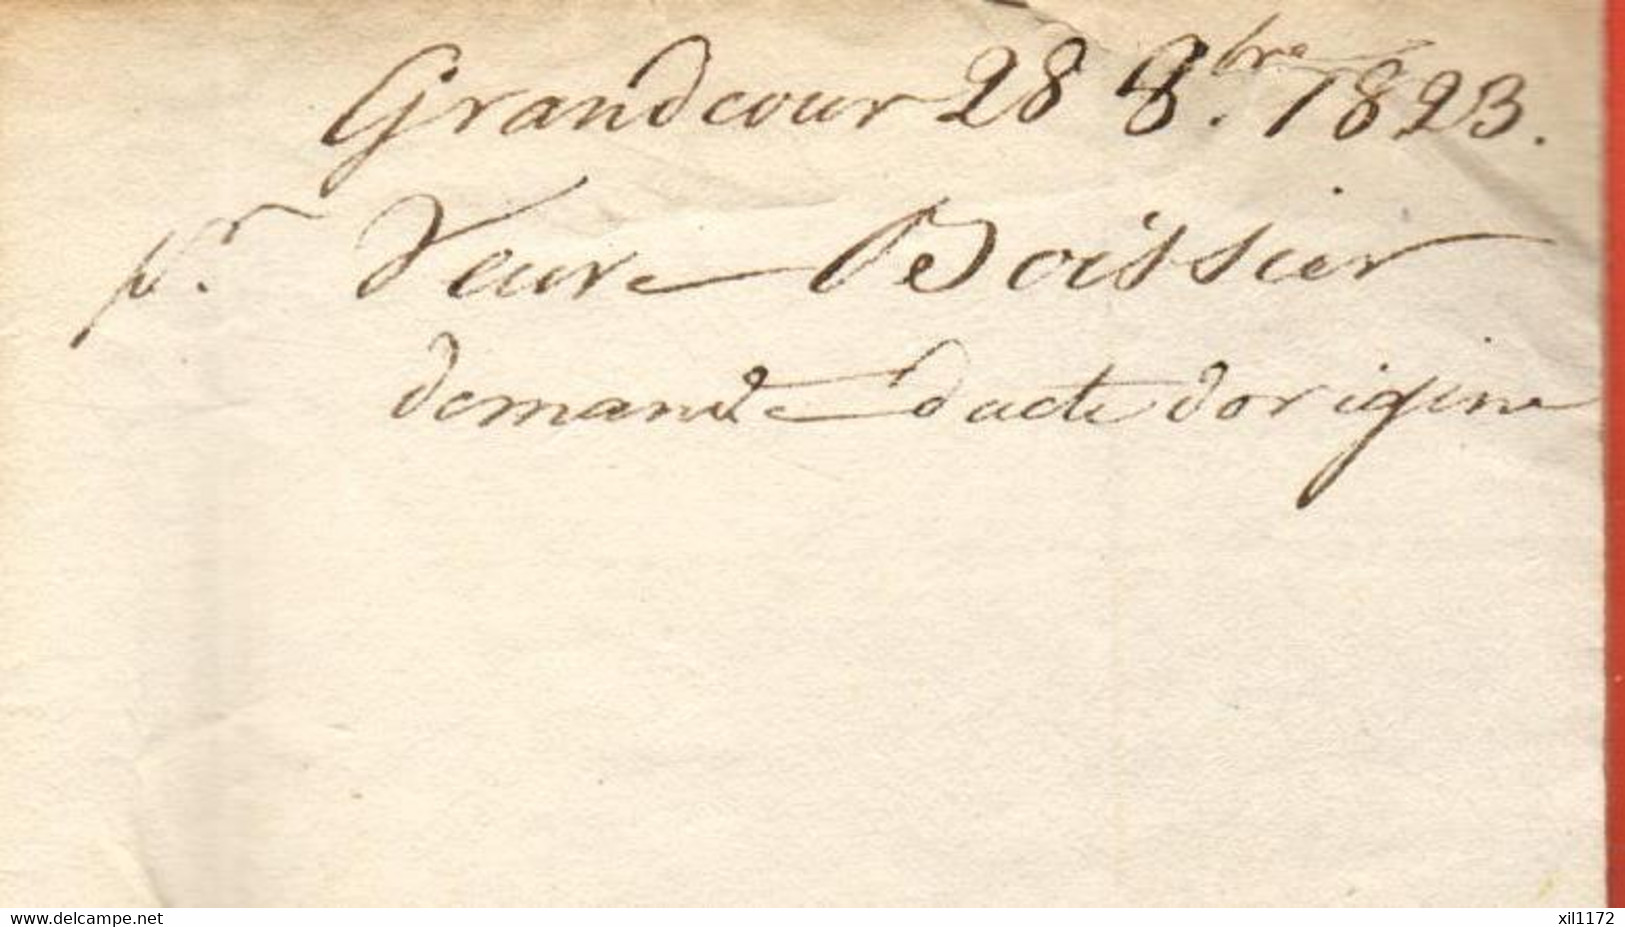 Grandcour 28 8.bre 1823.
pr. Veuve Boissier
demande dacte dorigine
www.delcampe.net
xil1172